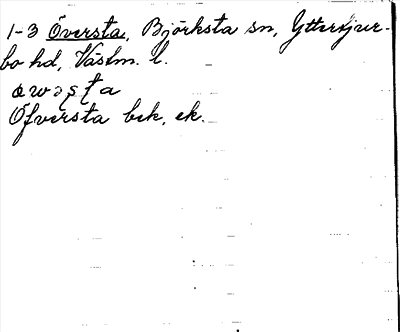 1-3 Översta, Björksta sn, Yttertjur-
bo hd, Västm. l.
Öfversta bek, ek.